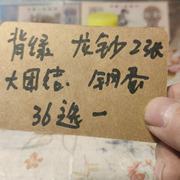 背绿 龙钞23张
大团结 钢蛋
36选一